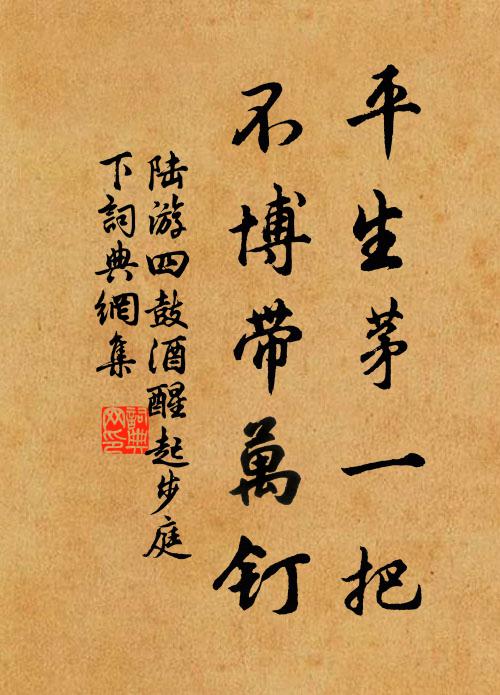 平生茅一把
不博带萬钉
陆游四鼓酒醒起步庭
下詞典網集
詞典网印